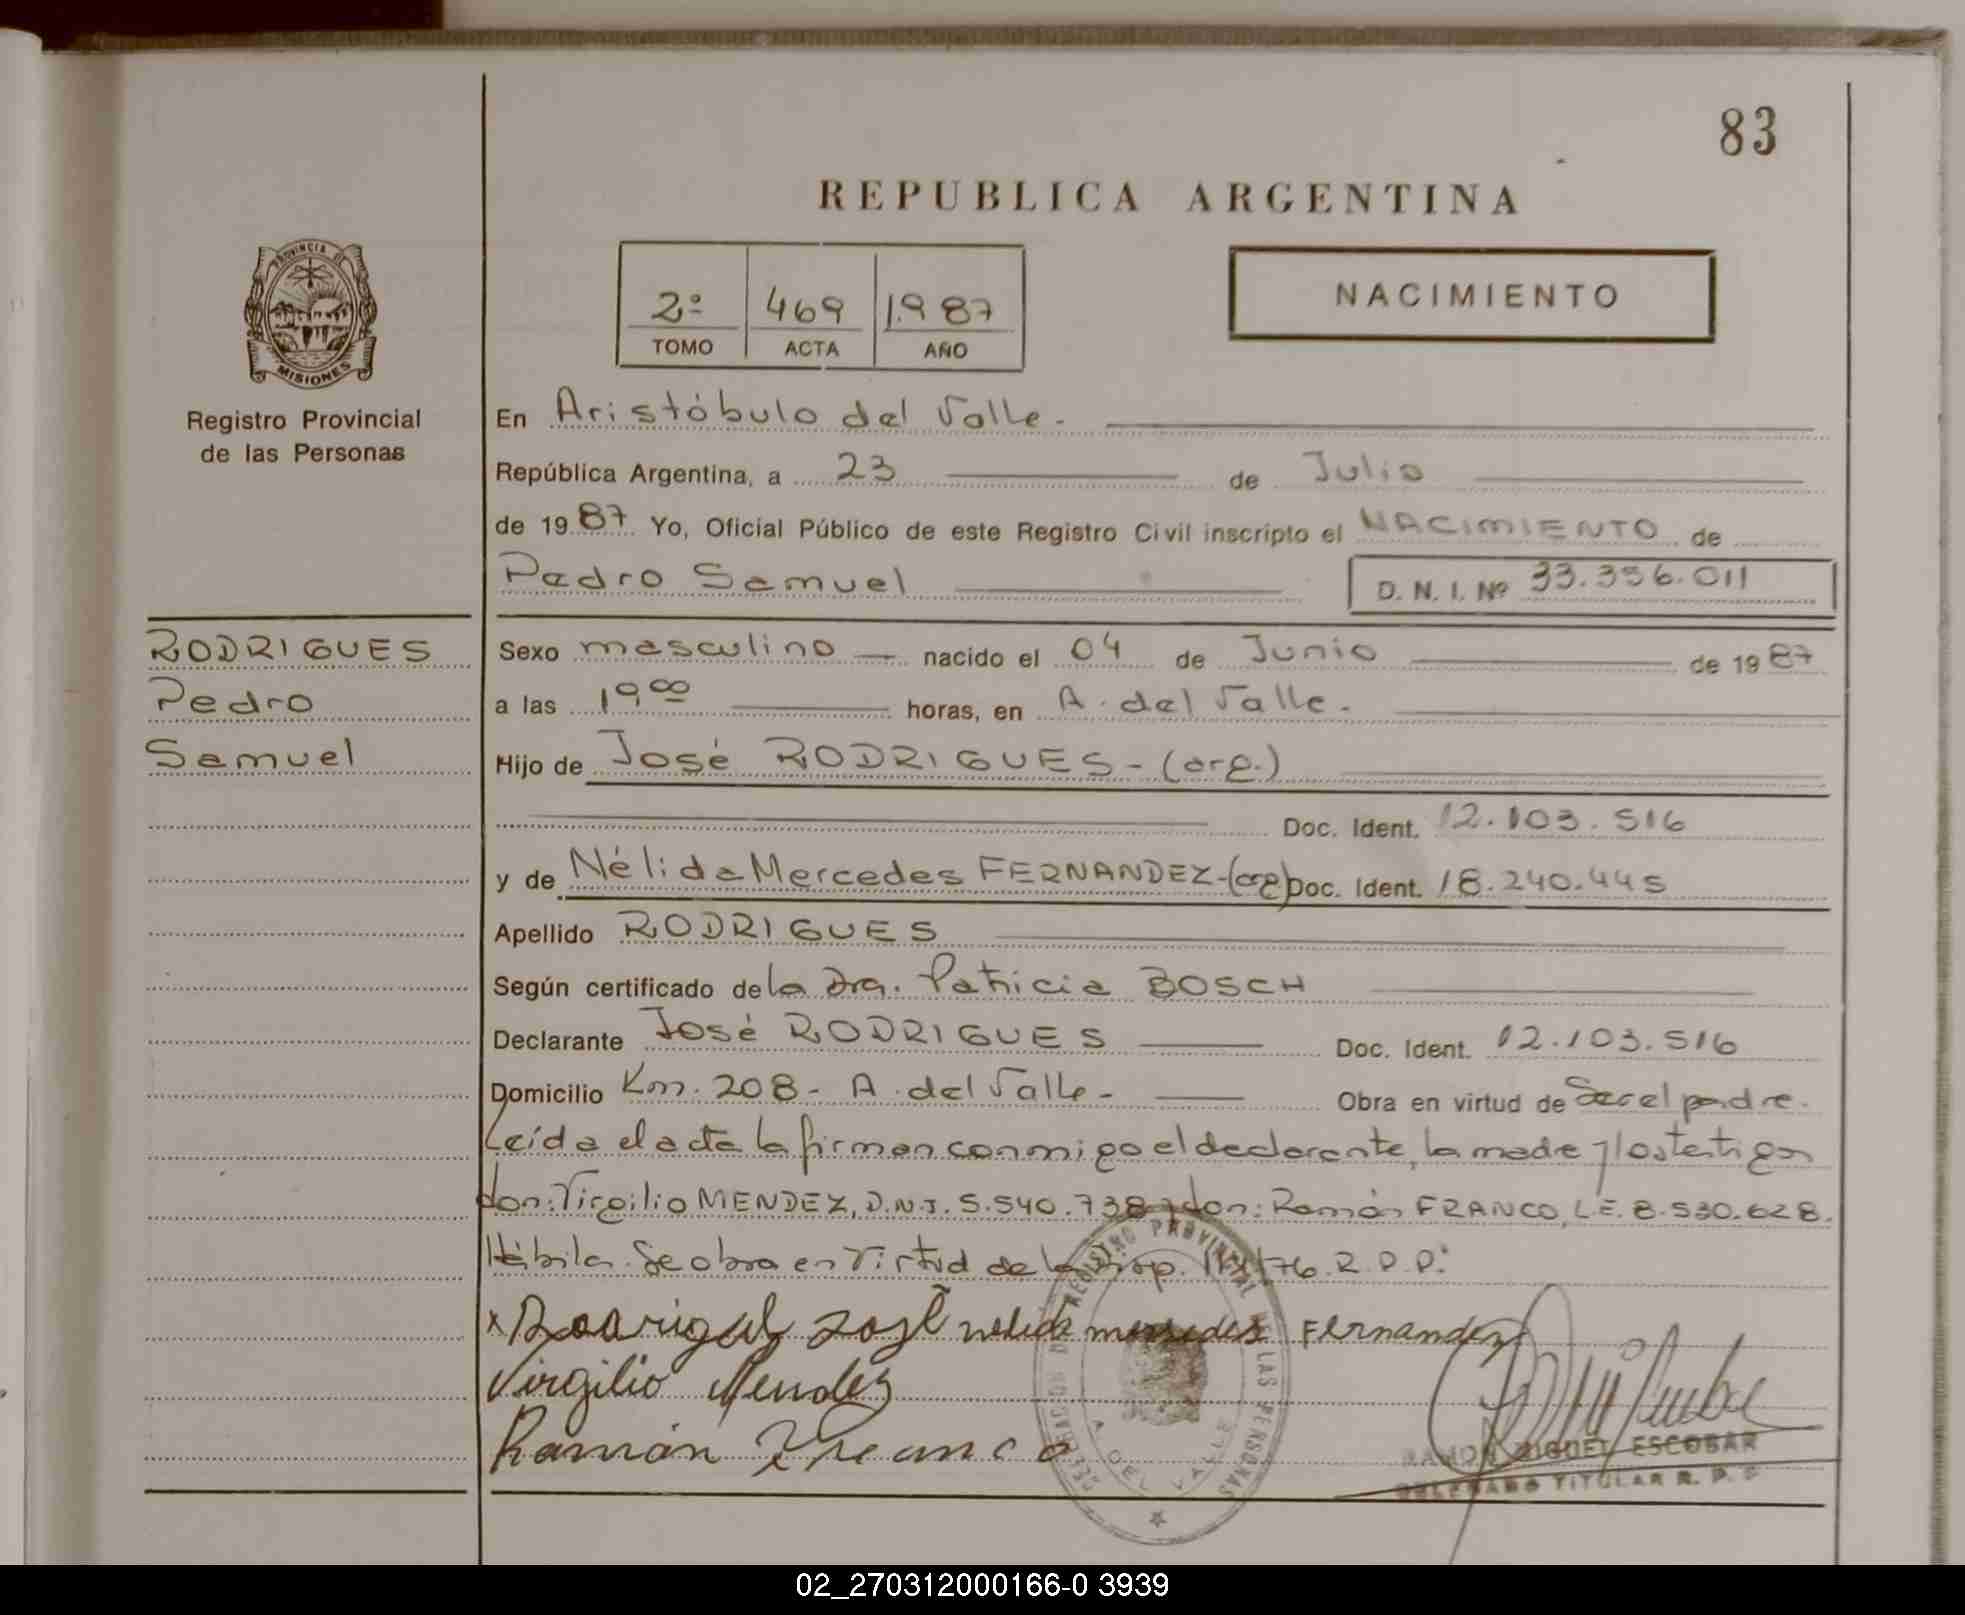 83
REPUBLICA ARGENTINA
PROVINCIA DE
MISIONES
Registro Provincial
de las Personas
2º 469 1.987
TOMO ACTA AÑO
NACIMIENTO
En Aristóbulo del Valle.
República Argentina, a 23 de Julio
de 1987 Yo, Oficial Público de este Registro Civil inscripto el NACIMIENTO de
Pedro Samuel D. N. I. Nº 33.356.011
RODRIGUES
Pedro
Samuel
Sexo masculino nacido el 04 de Junio de 1987
a las 19 00 horas, en A. del Valle.
Hijo de José RODRIGUES - (arg.)
Doc. Ident. 12.103.516
y de Nélida Mercedes FERNANDEZ - (arg) Doc. Ident. 18.240.445
Apellido RODRIGUES
Según certificado de la Dra. Patricia BOSCH
Declarante José RODRIGUES Doc. Ident. 12.103.516
Domicilio Km. 208 - A. del Valle - Obra en virtud de Ser el padre.
Leída el acta la firman conmigo el declarante, la madre y los testigos
don: Virgilio MENDEZ, D.N.I. 5.540.738 y don: Ramón FRANCO, L.E. 8.530.628.
Hábiles. Se obra en Virtud de la Disp. /76. R.P.P.
x José nelida mersedes Fernandez
Virgilio Mendez
Ramón Franco
REGISTRO PROVINCIAL DE LAS PERSONAS
A. DEL VALLE
RAMON MIGUEL ESCOBAR
DELEGADO TITULAR R. P. P.
02_270312000166-0 3939